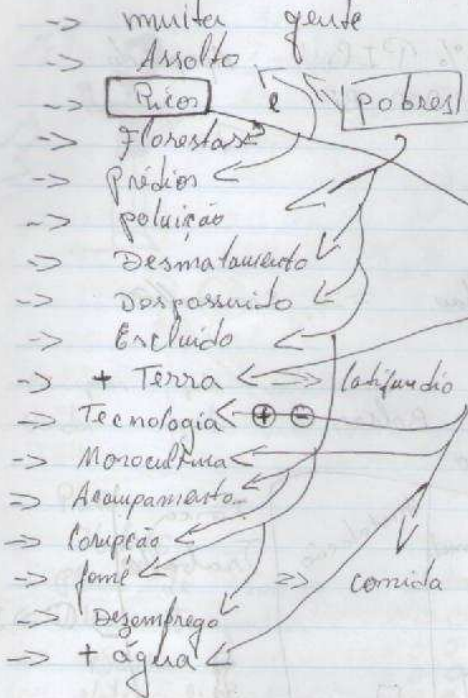 -> muita gente
-> Assolto
-> Ricos e pobres
-> Florestas
-> Prédios
-> poluição
-> Desmatamento
-> Despossuido
-> Excluido
-> + Terra => latifundio
-> Tecnologia + -
-> Monocultura
-> Acampamento
-> Corupção
-> fome => comida
-> Dezemprego
-> + água